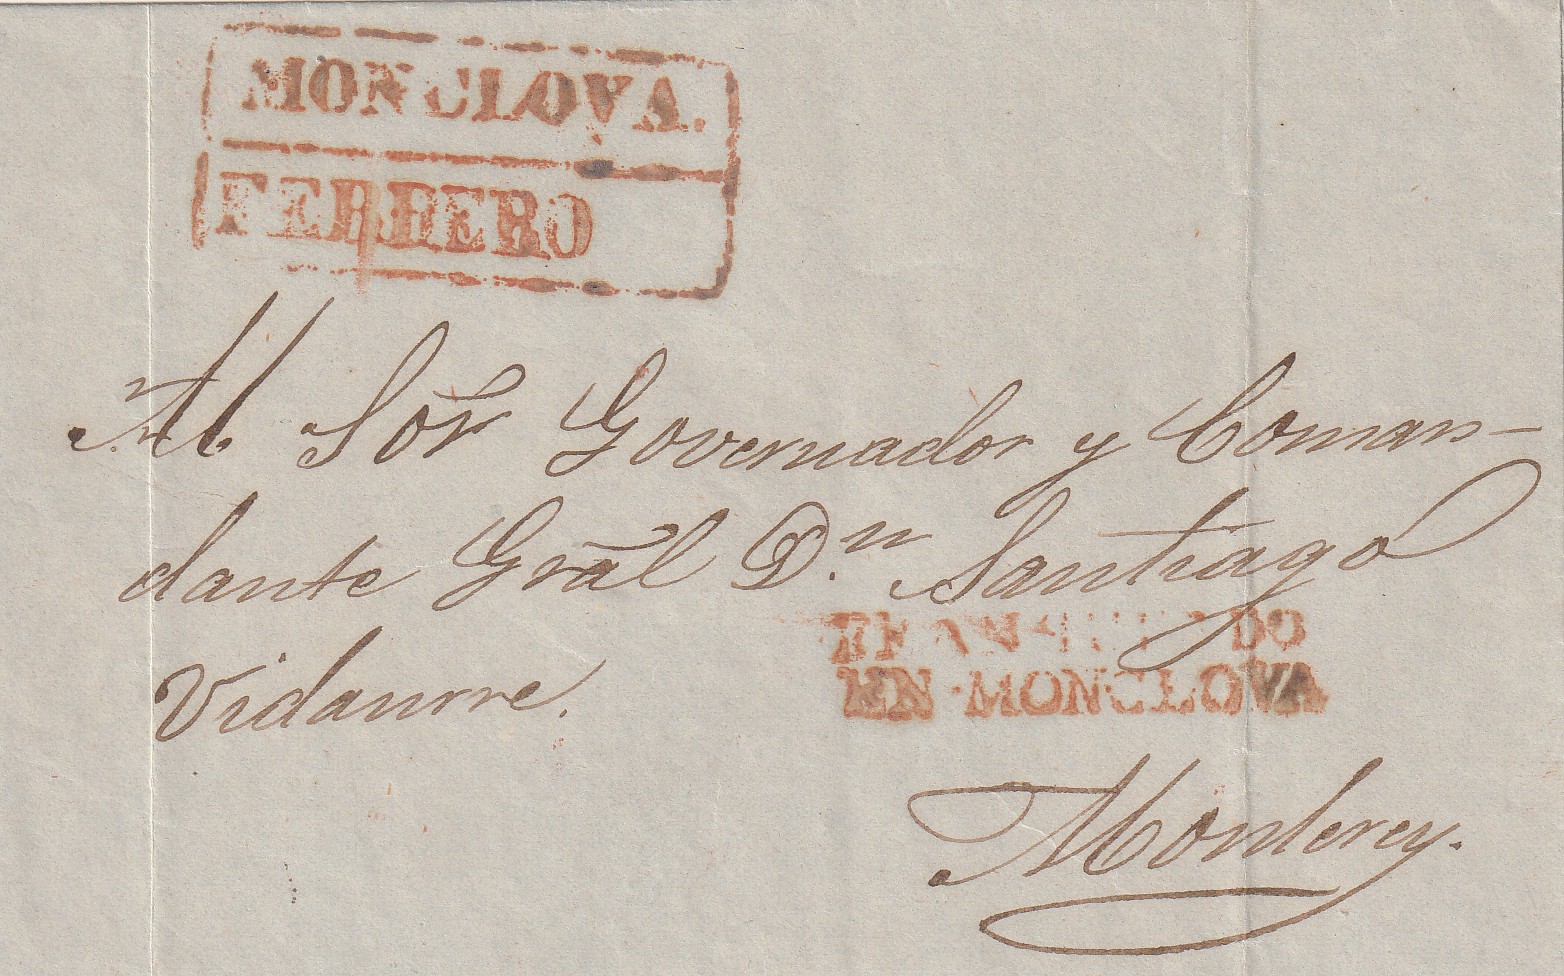 MONCLOVA.
FEBRERO
Al Sor Governador y Coman-
dante Gral D.n Santiago
Vidaurre.
EN MONCLOVA
Monterey.